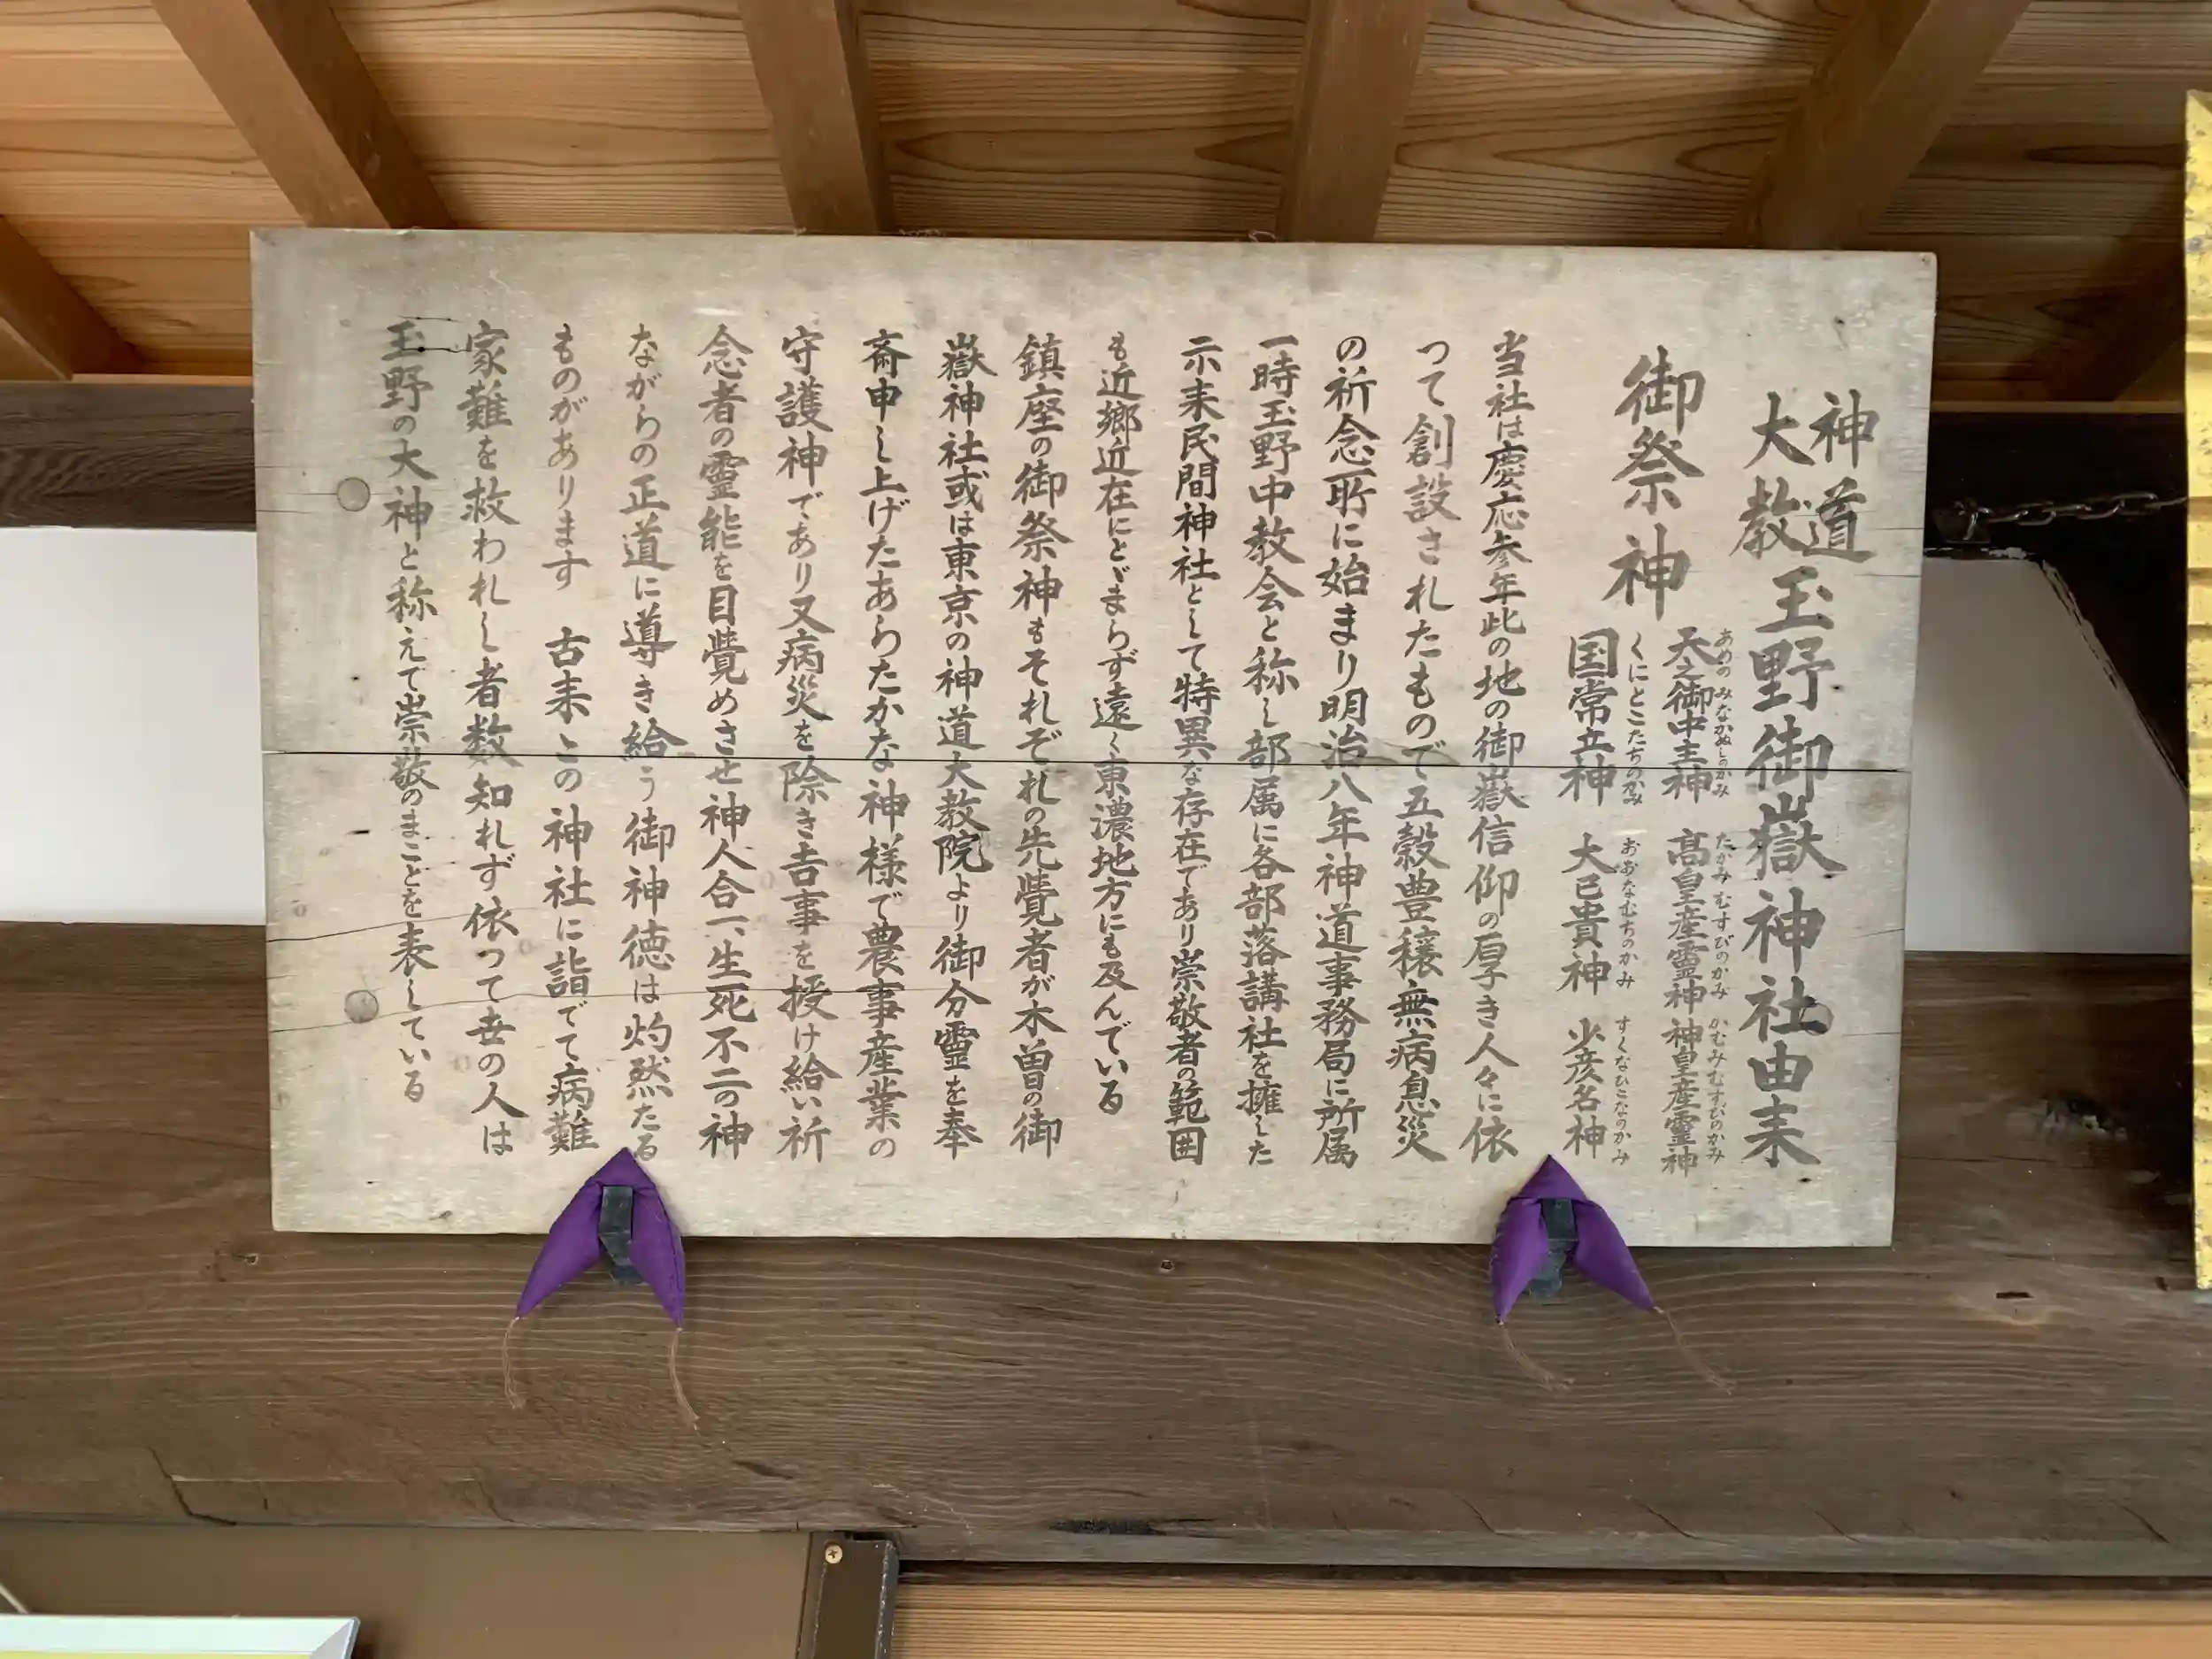 神道
大教
玉野御嶽神社由来
御祭神
あめのみなかぬしのかみ
天之御中主神
たかみむすびのかみ
高皇産霊神
かむみむすびのかみ
神皇産霊神
くにとこたちのかみ
国常立神
おおなむちのかみ
大已貴神
すくなひこなのかみ
少彦名神
当社は慶応参年此の地の御嶽信仰の厚き人々に依
つて創設されたもので五穀豊穣無病息災
の祈念所に始まり明治八年神道事務局に所属
一時玉野中教会と称し部属に各部落講社を擁した
示来民間神社として特異な存在であり崇敬者の範囲
も近郷近在にとゞまらず遠く東濃地方にも及んでいる
鎮座の御祭神もそれぞれの先覺者が木曽の御
嶽神社或は東京の神道大教院より御分霊を奉
斎申し上げたあらたかな神様で農事産業の
守護神であり又病災を除き吉事を授け給い祈
念者の霊能を目覺めさせ神人合一、生死不二の神
ながらの正道に導き給う御神徳は灼然たる
ものがあります 古来この神社に詣でて病難
家難を救われし者数知れず依つて世の人は
玉野の大神と称えて崇敬のまことを表している